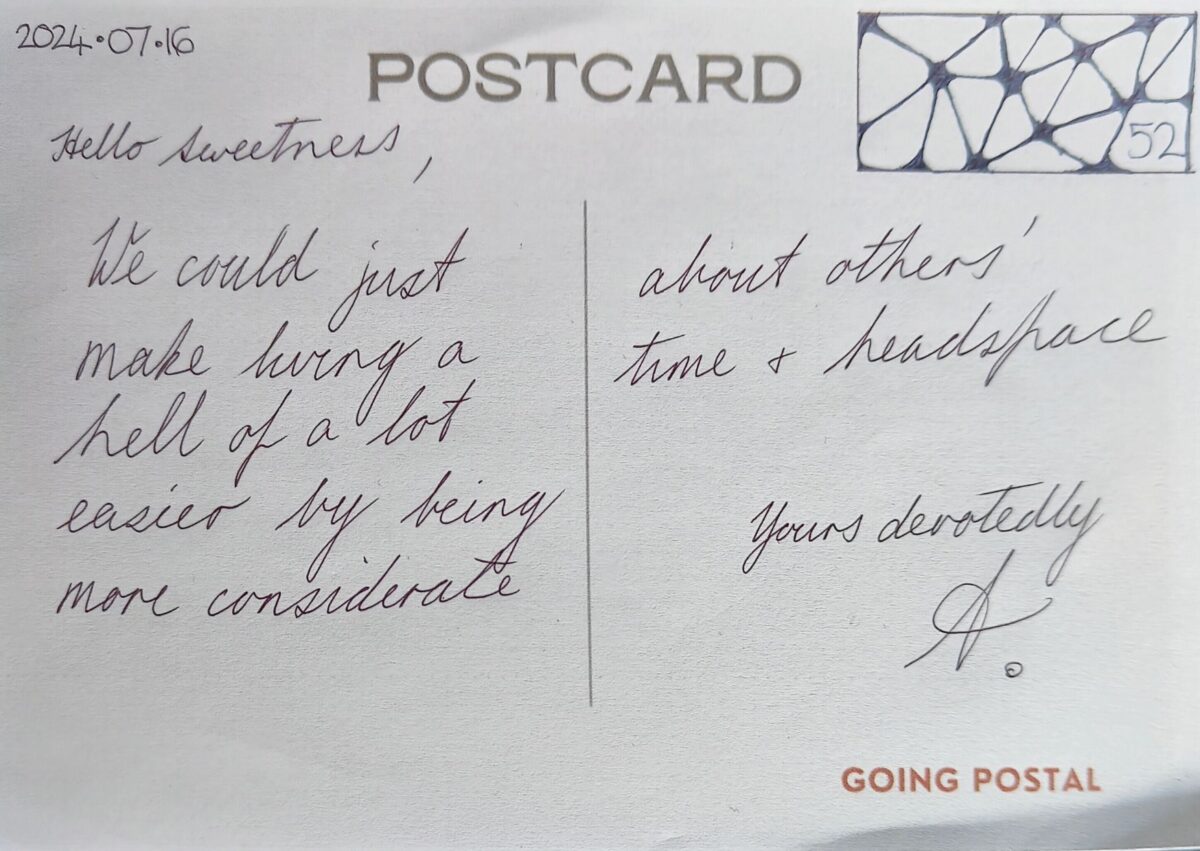 2024.07.16
POSTCARD
52
Hello sweetness,
We could just
make living a
hell of a lot
easier by being
more considerate
about others'
time + headspace
Yours devotedly
A.
GOING POSTAL